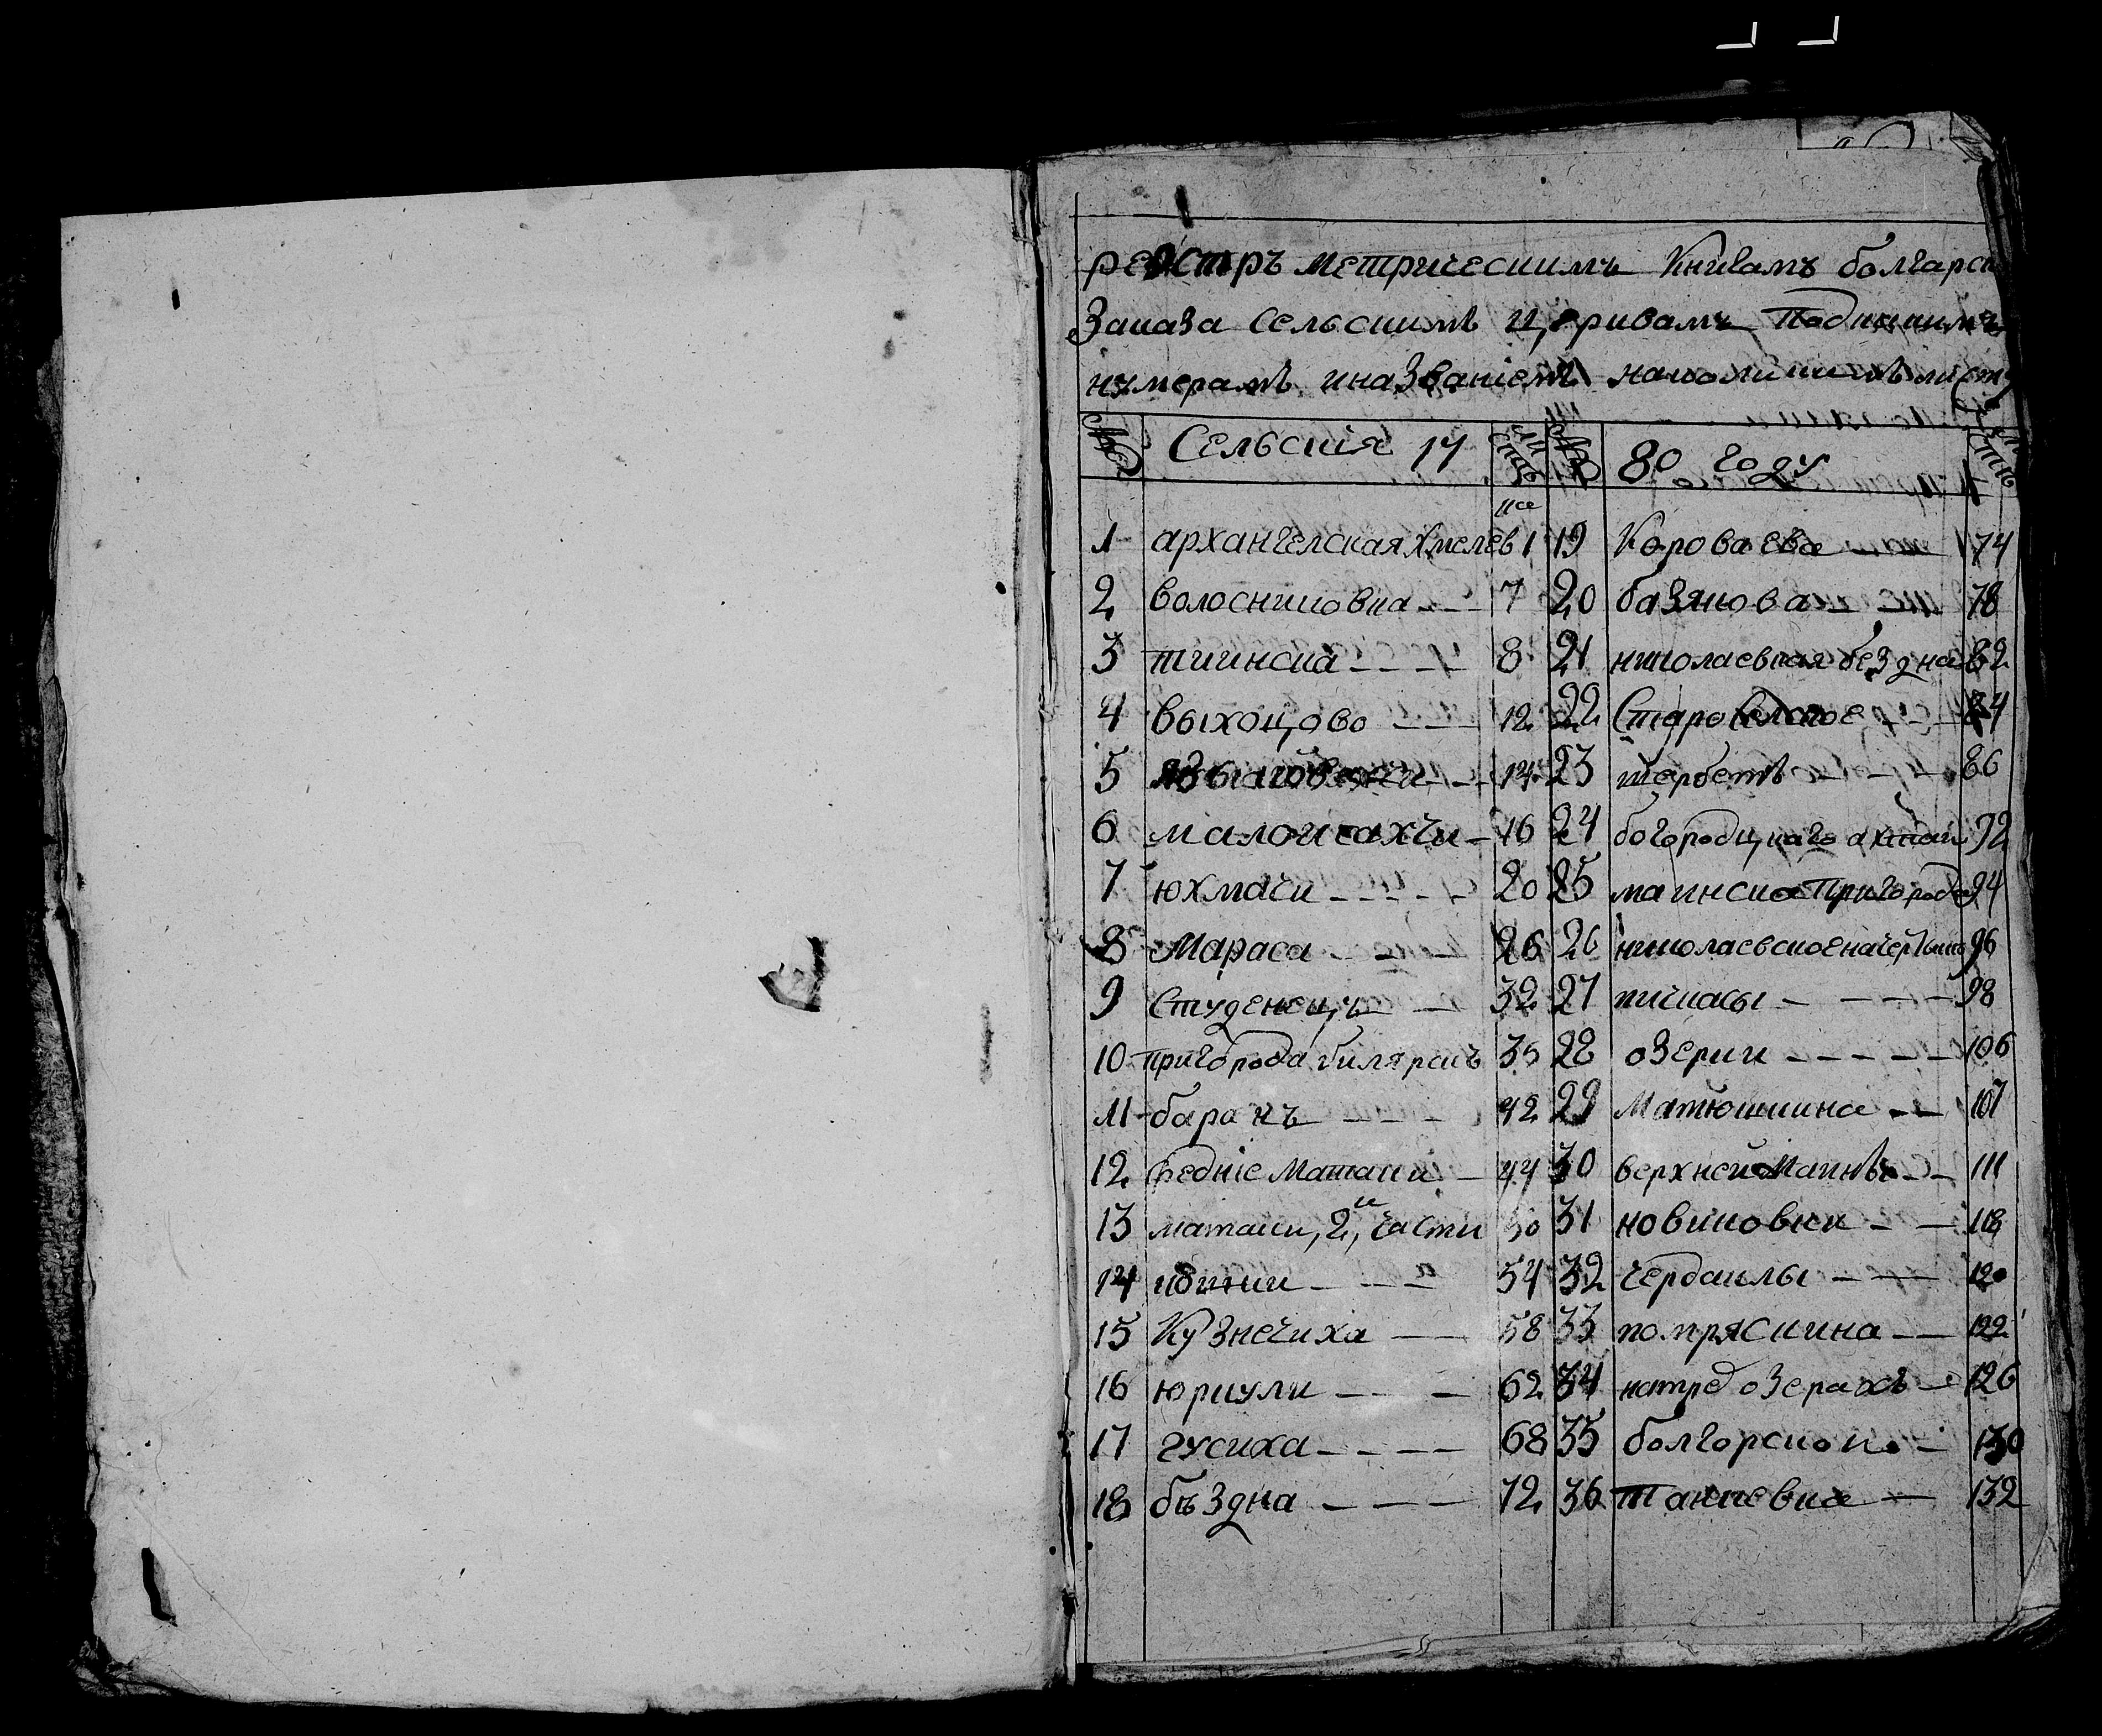 реэстръ метрическимъ книгамъ болгарск
Заказа Сельскимъ церквамъ под
нумерамъ иназваніемъ наколикихъ
№ Сельскія 17 № 80 году
1 архангелская хмелев 1 19 Короваева 74
2 волосниковка 7 20 базякова 78
3 тиинска 8 21 николаевкая бездна 82
4 выхоцово 12 22 Староселское 84
5 14 23 щербетъ 86
6 малои сахчи 16 24 богородцкаго ахтаи 92
7 юхмачи 20 25 маинска пригорода 94
8 Мараса 26 26 николаевское 96
9 Студенецъ 32 27 пичкасы 98
10 пригорода билярскъ 35 28 озерки 106
11 баранъ 42 29 Матюшкина 107
12 Средніе Матаки 44 30 верхнеи Маинъ 111
13 матаки, 2,и части 50 31 новиковки 118
14 54 32 чердаклы 120
15 Кузнечиха 58 33 помряскина 122
16 юркули 62 34 озерахъ 126
17 гусиха 68 35 130
18 бъздна 72 36 танкевка 132